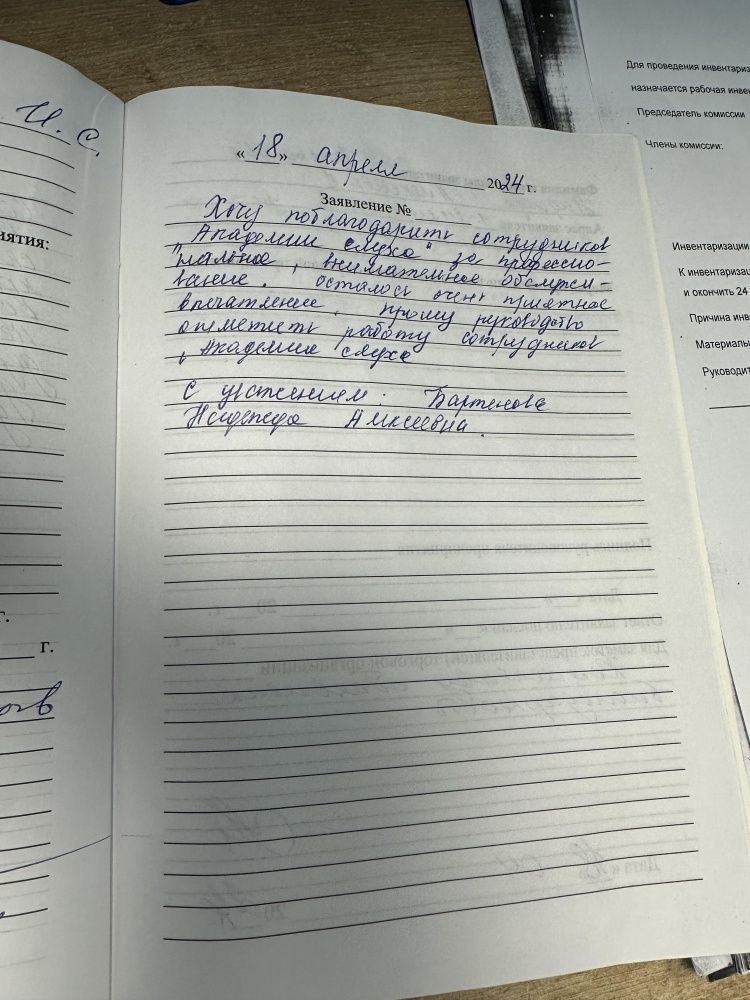 И. С.
иятия:
г.
г.
« 18 » апреля 2024 г.
Заявление №
Хочу поблагодарить сотрудников
"Академии слуха" за профессио-
нальное, внимательное обслужи-
вание. Осталось очень приятное
впечатление. Прошу руководство
отметить работу сотрудников
"Академия слуха
С уважением. Бартенова
Надежда Алексеевна.
Для проведения инвентариз
назначается рабочая инвен
Председатель комиссии
Члены комиссии:
Инвентаризации
К инвентаризац
и окончить 24
Причина инв
Материальн
Руководит